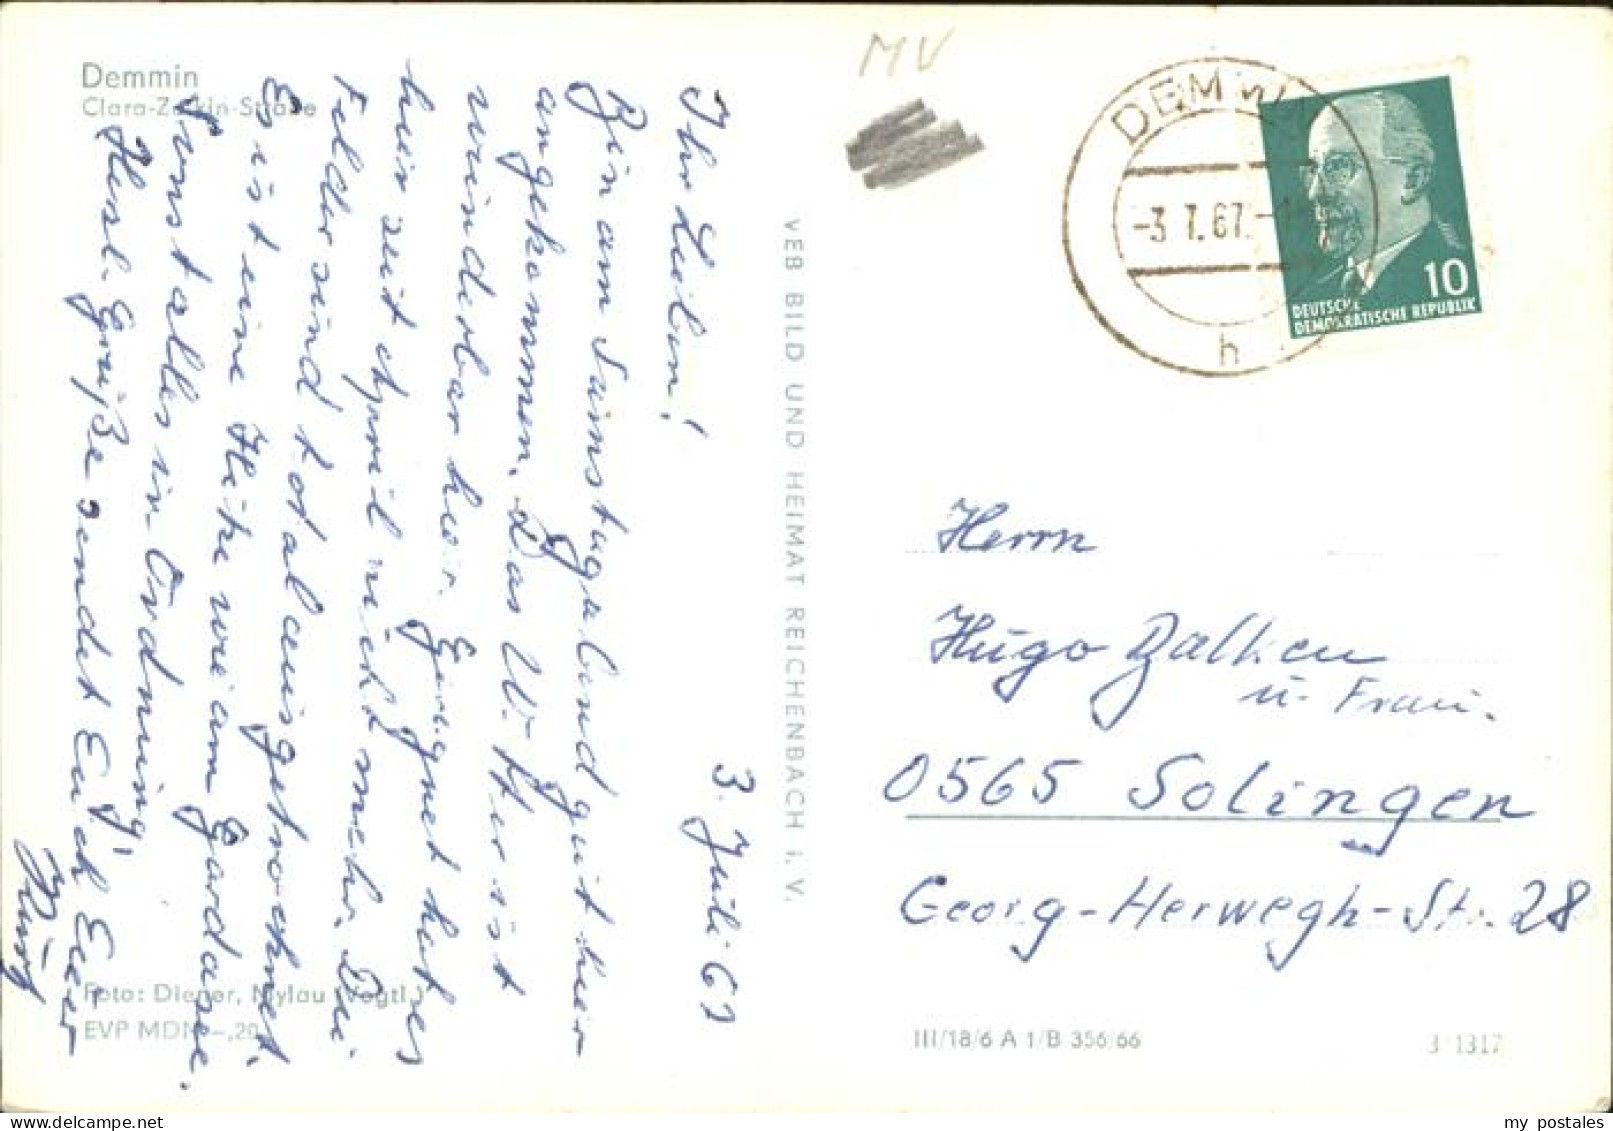 Demmin
Clara-Zetkin-Straße
3. Juli 67
Ihr Lieben!
Bin am Sonnstagabend gut hier
angekommen. Das Wetter ist
wunderbar hier. Geregnet hat es
hier seit April nicht mehr. Die
Felder sind total ausgetrocknet.
Es ist eine Hitze wie am Gardasee.
Sonst alles in Ordnung!
Herzl. Grüße sendet Euch Euer
Foto: Diener, Mylau (Vogtl.)
EVP MDN -,20
VEB BILD UND HEIMAT REICHENBACH i. V.
MV
DEMMIN
-3.7.67.-
h
10
DEUTSCHE
DEMOKRATISCHE REPUBLIK
Herrn
Hugo Balken
u. Frau.
0565 Solingen
Georg-Herwegh-Str. 28
III/18/6 A 1/B 356/66
3/1317
my postales